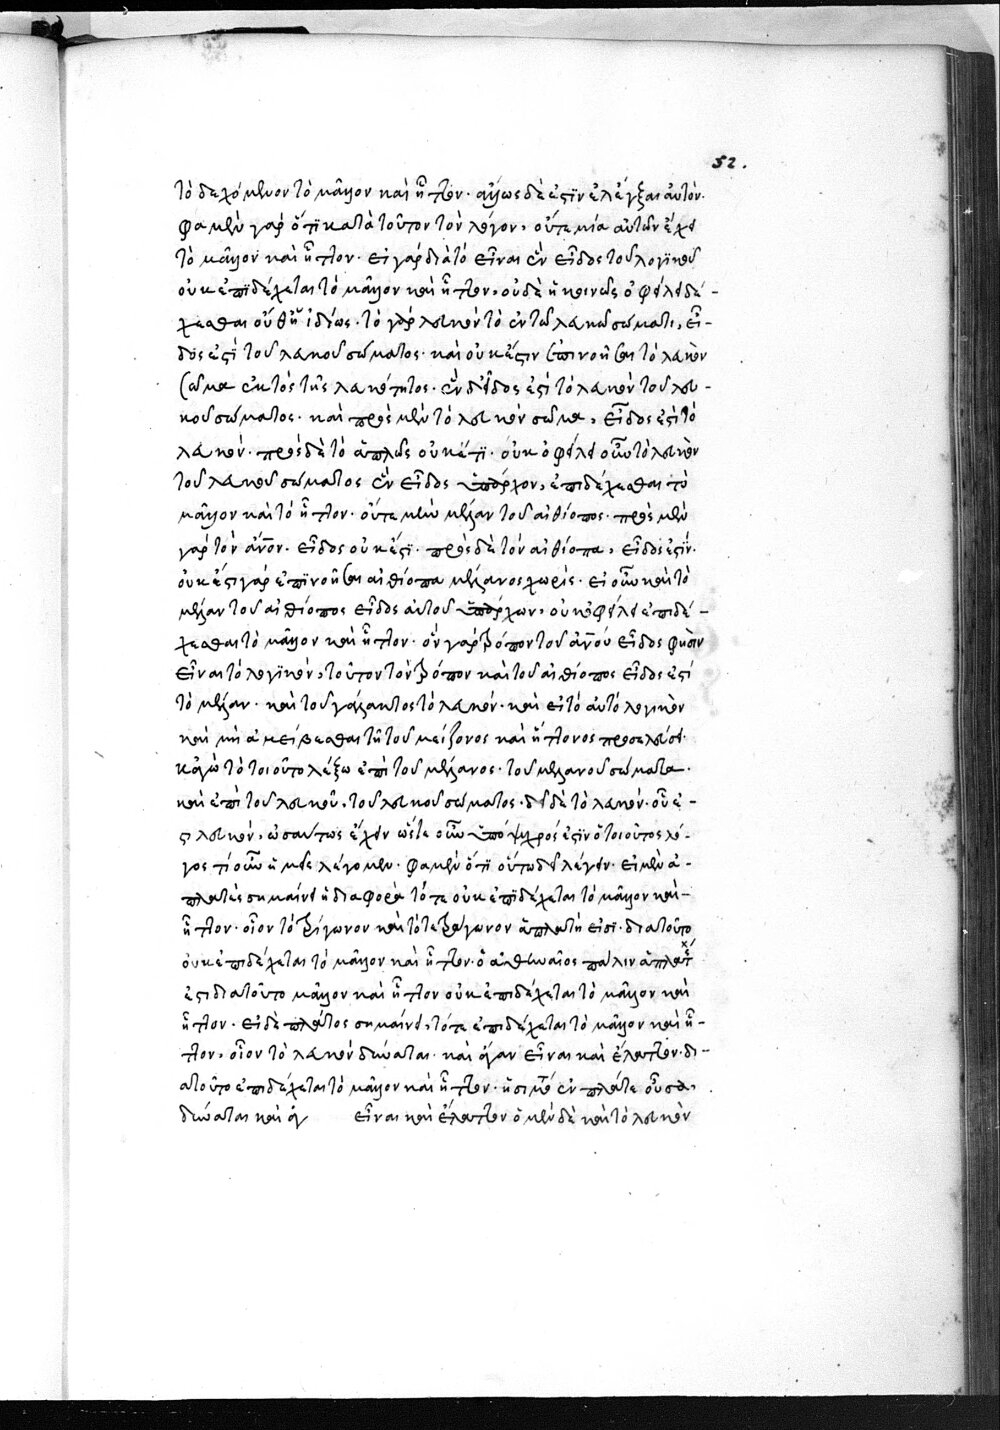 52.
τὸ δεχόμενον τὸ μᾶλλον καὶ ἧττον. ἄλλως δὲ ἐστὶν ἐλέγξαι αὐτόν.
φαμὲν γάρ ὅτι κατὰ τοῦτον τὸν λόγον, οὔτε μία αὐτῶν ἔχει
τὸ μᾶλλον καὶ ἧττον. εἰ γάρ διὰ τὸ εἶναι ἓν εἶδος τοῦ λογικοῦ
οὐκ ἐπιδέχεται τὸ μᾶλλον καὶ ἧττον, οὐδὲ ἡ κοινῶς ὀφείλει δέ-
χεσθαι οὔθ' ἡ ἰδίως. τὸ γὰρ λευκὸν τὸ ἐν τῶ λευκῶ σώματι, εἶ-
δός ἐστι τοῦ λευκοῦ σώματος. καὶ οὐκ ἔστιν ἐπινοῆσαι τὸ λευκὸν
σῶμα ἐκτὸς τῆς λευκότητος. ἓν δ' εἶδος ἐστὶ τὸ λευκὸν τοῦ λευ-
κοῦ σώματος. καὶ πρὸς μὲν τὸ λευκὸν σῶμα, εἶδος ἐστὶ τὸ
λευκόν. πρὸς δὲ τὸ ἁπλῶς οὐκέτι. οὐκ ὀφείλει οὖν τὸ λευκὸν
τοῦ λευκοῦ σώματος ἓν εἶδος ὑπάρχον, ἐπιδέχεσθαι τὸ
μᾶλλον καὶ τὸ ἧττον. οὔτε μὲν μέλαν τοῦ αἰθίοπος. πρὸς μὲν
γὰρ τὸν ἄνον. εἶδος οὐκ ἔστι. πρὸς δὲ τὸν αἰθίοπα, εἶδος ἐστίν.
οὐκ ἔστι γάρ ἐπινοῆσαι αἰθίοπα μέλανος χωρίς. εἰ οὖν καὶ τὸ
μέλαν τοῦ αἰθίοπος εἶδος αὐτοῦ ὑπάρχων, οὐκ ὀφείλει ἐπιδέ-
χεσθαι τὸ μᾶλλον καὶ ἧττον. ὃν γὰρ τρόπον τοῦ ἀνου εἶδος φησὶν
εἶναι τὸ λογικὸν, τοῦτον τὸν τρόπον καὶ τοῦ αἰθίοπος εἶδος ἐστὶ
τὸ μέλαν. καὶ τοῦ γάλακτος τὸ λευκόν. καὶ εἰ τὸ αὐτὸ λογικὸν
καὶ μὴ ἀμείβεσθαι τῆ τοῦ μείζονος καὶ ἥττονος προσελεύσει.
κἀγὼ τὸ τοιοῦτο λέξω ἐπὶ τοῦ μέλανος. τοῦ μέλανος σώματα.
καὶ ἐπὶ τοῦ λευκοῦ, τοῦ λευκοῦ σώματος. διὰ δὲ τὸ λευκὸν. οὗ ἐ-
στι λευκόν, ὡσαύτως ἔχειν ὥστε οὖν ὑπόψυχρός ἐστιν ὁ τοιοῦτος λό-
γος τί οὖν ἡμεῖς λέγομεν. φαμὲν ὅτι οὕτω δεῖ λέγειν. εἰ μὲν ἀ-
πλατὲς σημαίνει ἡ διαφορὰ τότε οὐκ ἐπιδέχεται τὸ μᾶλλον καὶ-
ἧττον. οἷον τὸ τρίγωνον καὶ τὸ τετράγωνον ἀπλατῆ εἰσι. διὰ τοῦτο
οὐκ ἐπιδέχεται τὸ μᾶλλον καὶ ἧττον. ὁ ἀθηναῖος πάλιν ἀπλατές
ἐστι διὰ τοῦτο μᾶλλον καὶ ἧττον οὐκ ἐπιδέχεται τὸ μᾶλλον καὶ
ἧττον. εἰ δὲ πλάτος σημαίνει, τότε ἐπιδέχεται τὸ μᾶλλον καὶ ἧ-
ττον, οἷον τὸ λευκὸν δύναται. καὶ ἄγαν εἶναι καὶ ἔλαττον. δι-
ατοῦτο ἐπιδέχεται τὸ μᾶλλον καὶ ἧττον. ἡ σιμότης ἐν πλάτει οὖσα,
δύναται καὶ ἀγ εἶναι καὶ ἔλαττον ὁ μὲν δὲ καὶ τὸ λευκὸν